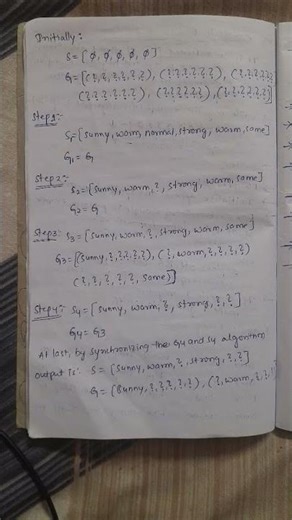 Initially:
S = [φ, φ, φ, φ, φ]
G = [(?,?,?,?,?,?), (?,?,?,?,?,?), (?,?,?,?,?,?
(?,?,?,?,?,?), (?,?,?,?,?,?), (?,?,?,?,?,?)]
Step1:-
S1=[sunny, warm, normal, strong, warm, same]
G1 = G
Step2:-
S2=[sunny, warm, ?, strong, warm, same]
G2 = G
Step3: S3 = [sunny, warm, ?, strong, warm, same]
G3=[(sunny,?,?,?,?,?), (?, warm,?,?,?,?)
(?,?,?,?,?, same)]
Step4:- S4 = [sunny, warm, ?, strong, ?, ?]
G4 = G3
At last, by synchronizing the G4 and S4 algorithm
output is: S = [sunny, warm, ?, strong, ?, ?]
G = (sunny,?,?,?,?,?), (?, warm,?,?,?